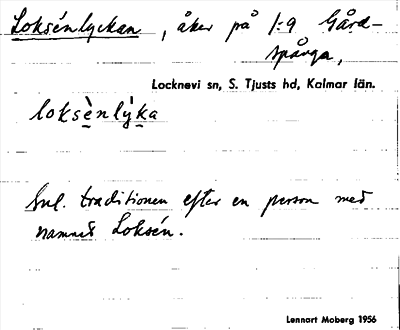 Loksénlyckan, åker på 1:9 Gård-
spånga,
Locknevi sn, S. Tjusts hd, Kalmar län.
loksènlỳka
Enl. traditionen efter en person med
namnet Loksén.
Lennart Moberg 1956